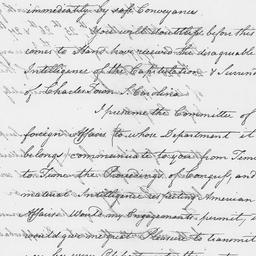 immediately by safe Conveyance
You will doubtless before this
comes to Hand have received the disagreable
Intelligence of the Capitulation & Surrend
of Charles Town S. Carolina
I presume the Committee of
foreign Affairs to whose Department it
belongs communicate to you from Time
to Time the Proceedings of Congress, and
material Intelligence respecting American
Affairs. Would my Engagements permit, i
would give me great Pleasure to transmit